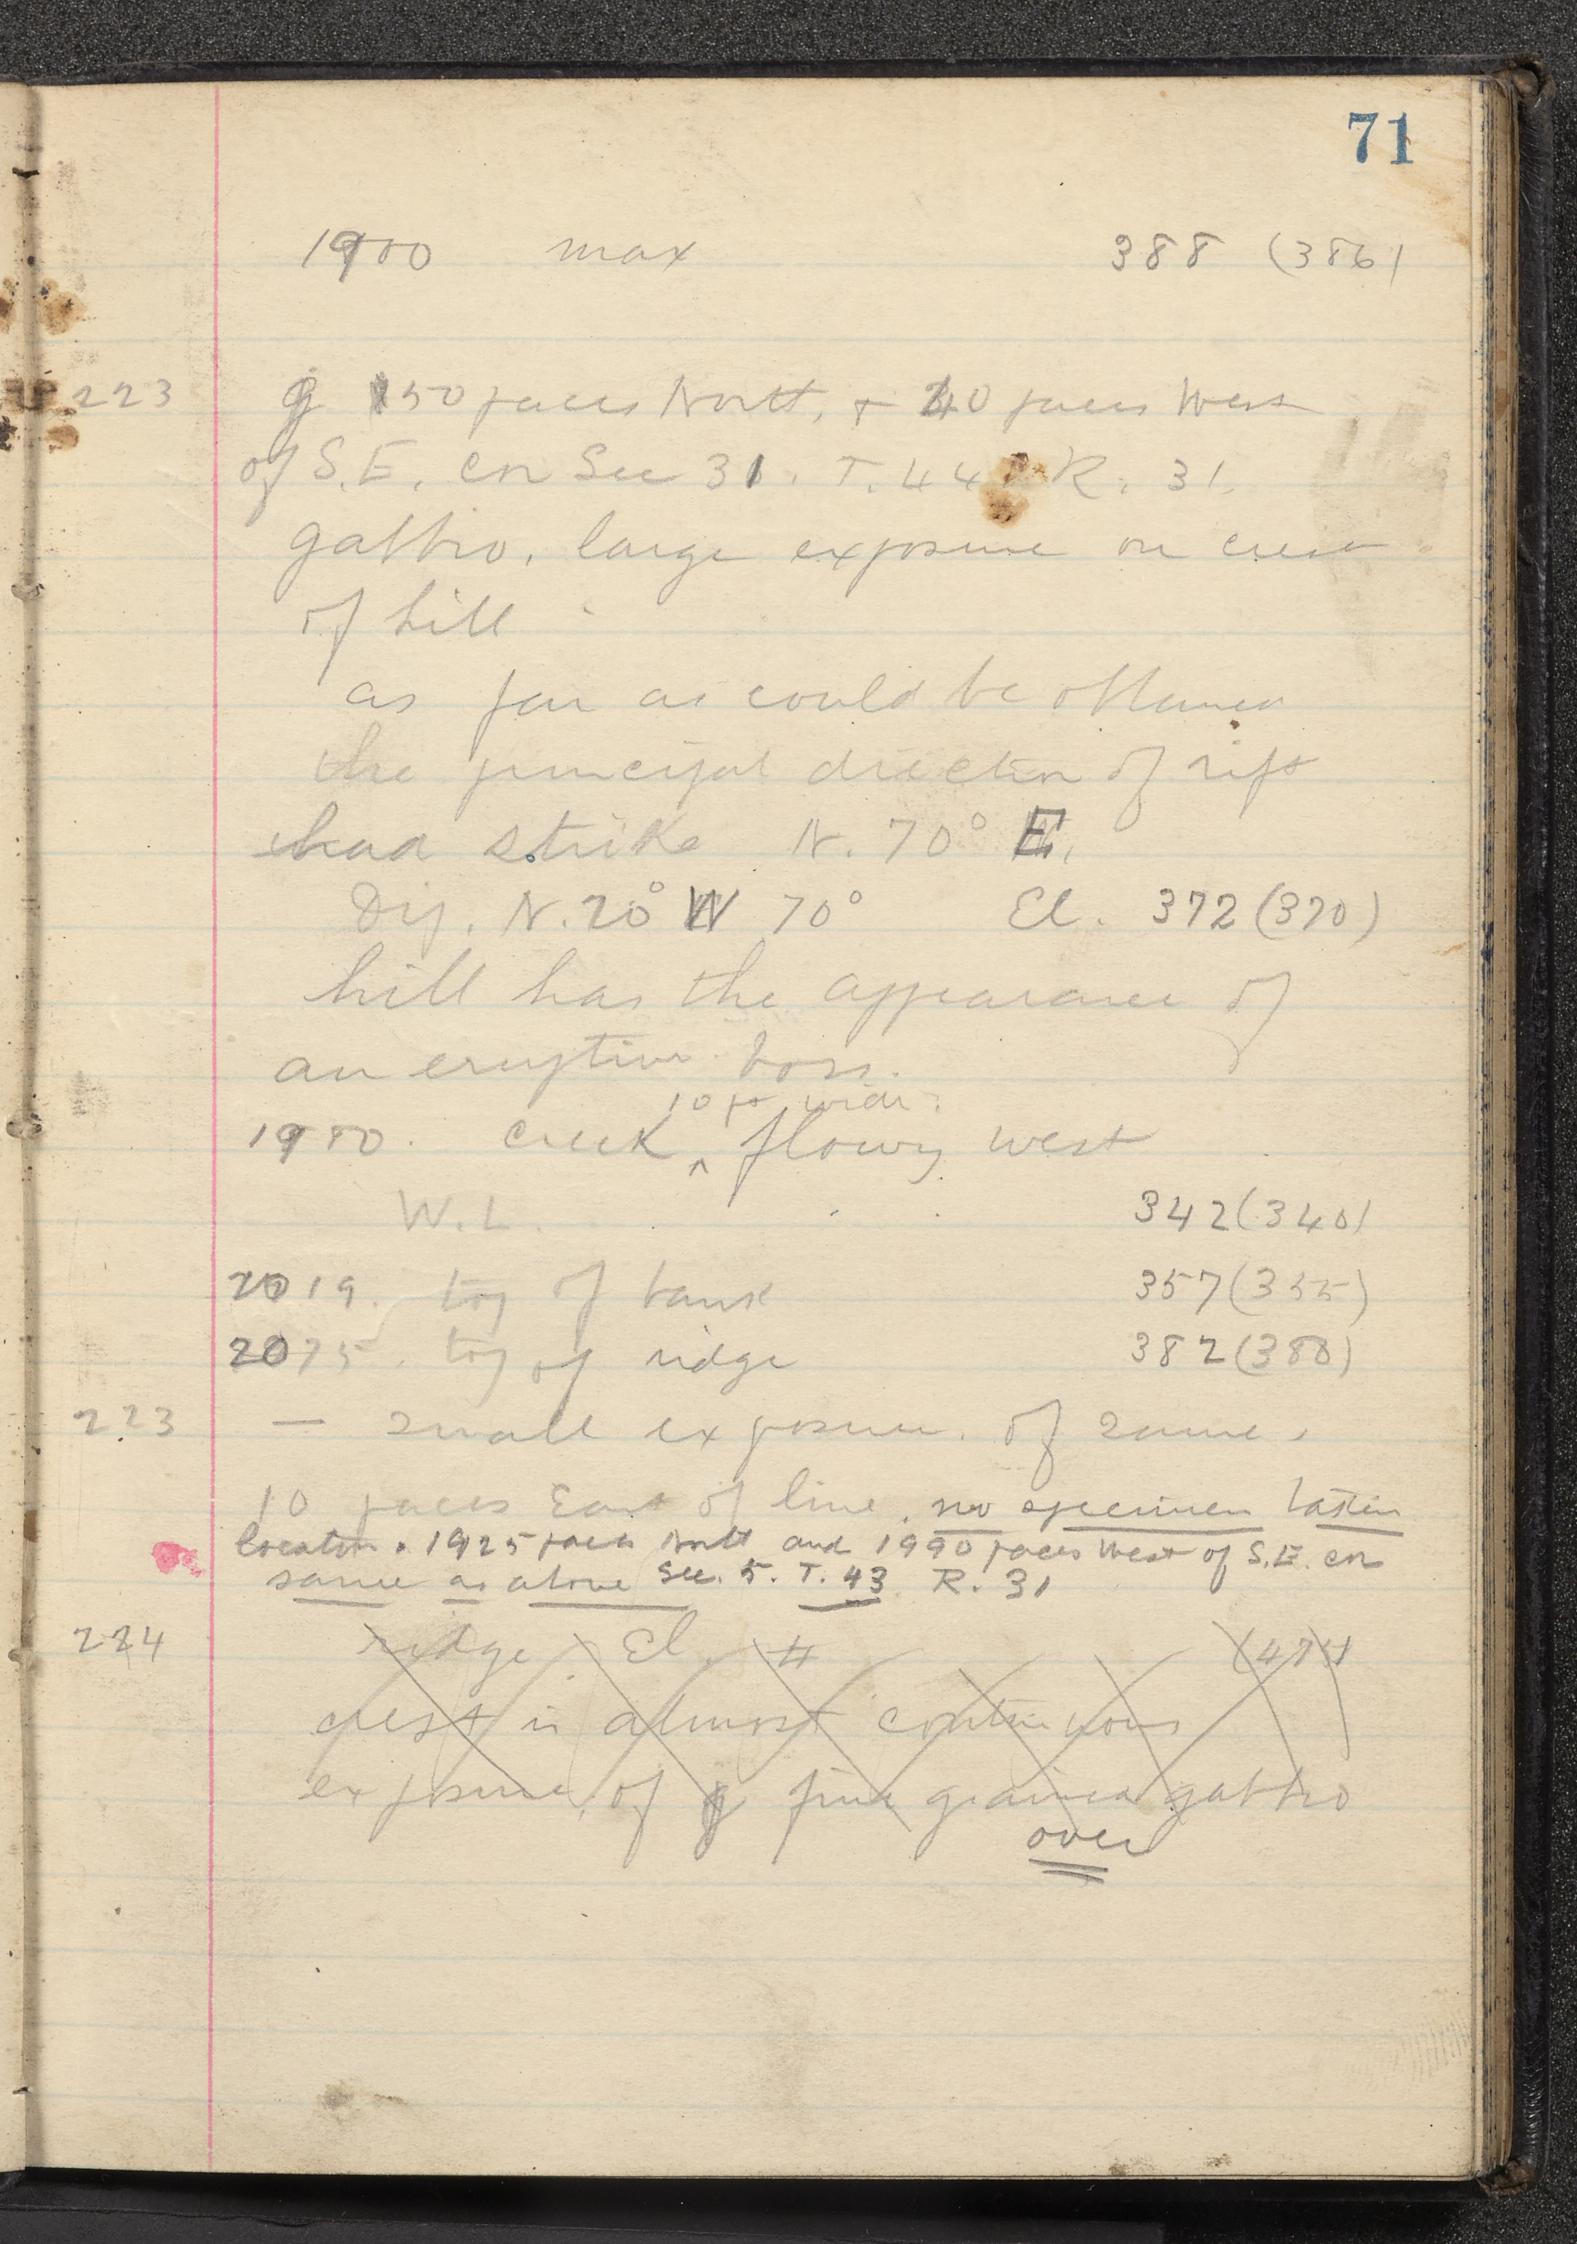 71
1900 max 388 (386)
223 150 paces North, + 240 paces West
of S.E. cor Sec 31. T. 44 R. 31.
gabbro, large exposure on crest
of hill
as far as could be obtained
the principal direction of rift
had strike N. 70° E.
Dip. N. 20° W 70° El. 372 (370)
hill has the appearance of
an eruptive boss.
10 ft wide
1980. creek ^ flowing west
W.L. 342 (340)
2019. top of bank 357 (355)
2075. top of ridge 382 (380)
223 — small exposure of same,
10 paces East of line, no specimen taken
Location. 1925 paces North and 1990 paces West of S.E. cor
same as above Sec. 5. T. 43 R. 31
224 ridge El. #
crest is almost continuous
exposure, of fine grained gabbro
over